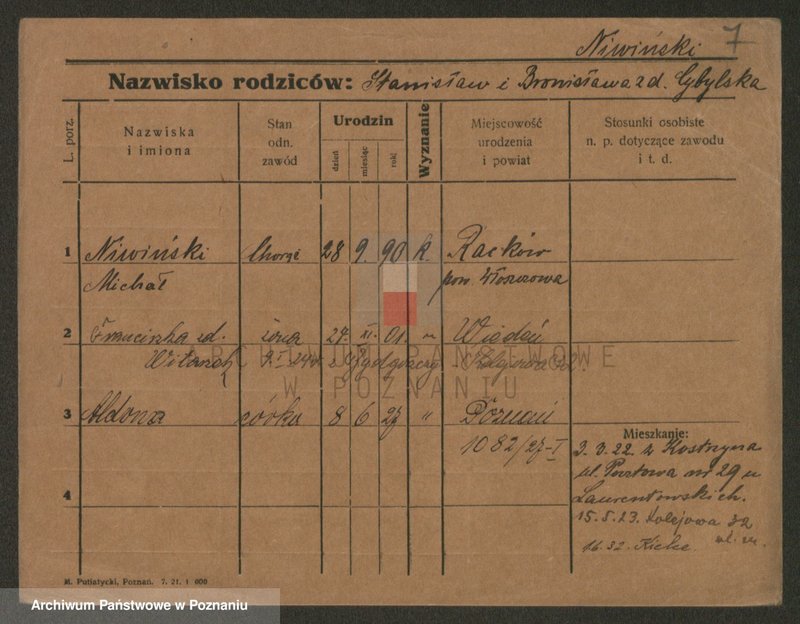 7
Niwiński
Nazwisko rodziców: Stanisław i Bronisława z d. Cybylska
L. porz.
Nazwiska i imiona
Stan odn. zawód
Urodzin
dzień
miesiąc
rok
Wyznanie
Miejscowość urodzenia i powiat
Stosunki osobiste n. p. dotyczące zawodu i t. d.
1 Niwiński 28 9. 90 k. Raków
Michał pow. Włoszczowa
2 Franciszka zd. żona 27. XI. 01. " Wiedeń
3 Aldona córka 8 6 27 " Poznań
1082/27-I
Mieszkanie:
3. V. 22. z Kostrzyna
ul. Pocztowa nr 29 u
Laurentowskich.
15. 5. 23. Kolejowa 32
4
M. Putiatycki, Poznań. 7. 21. 1 000
ARCHIWUM PAŃSTWOWE
W POZNANIU
Archiwum Państwowe w Poznaniu